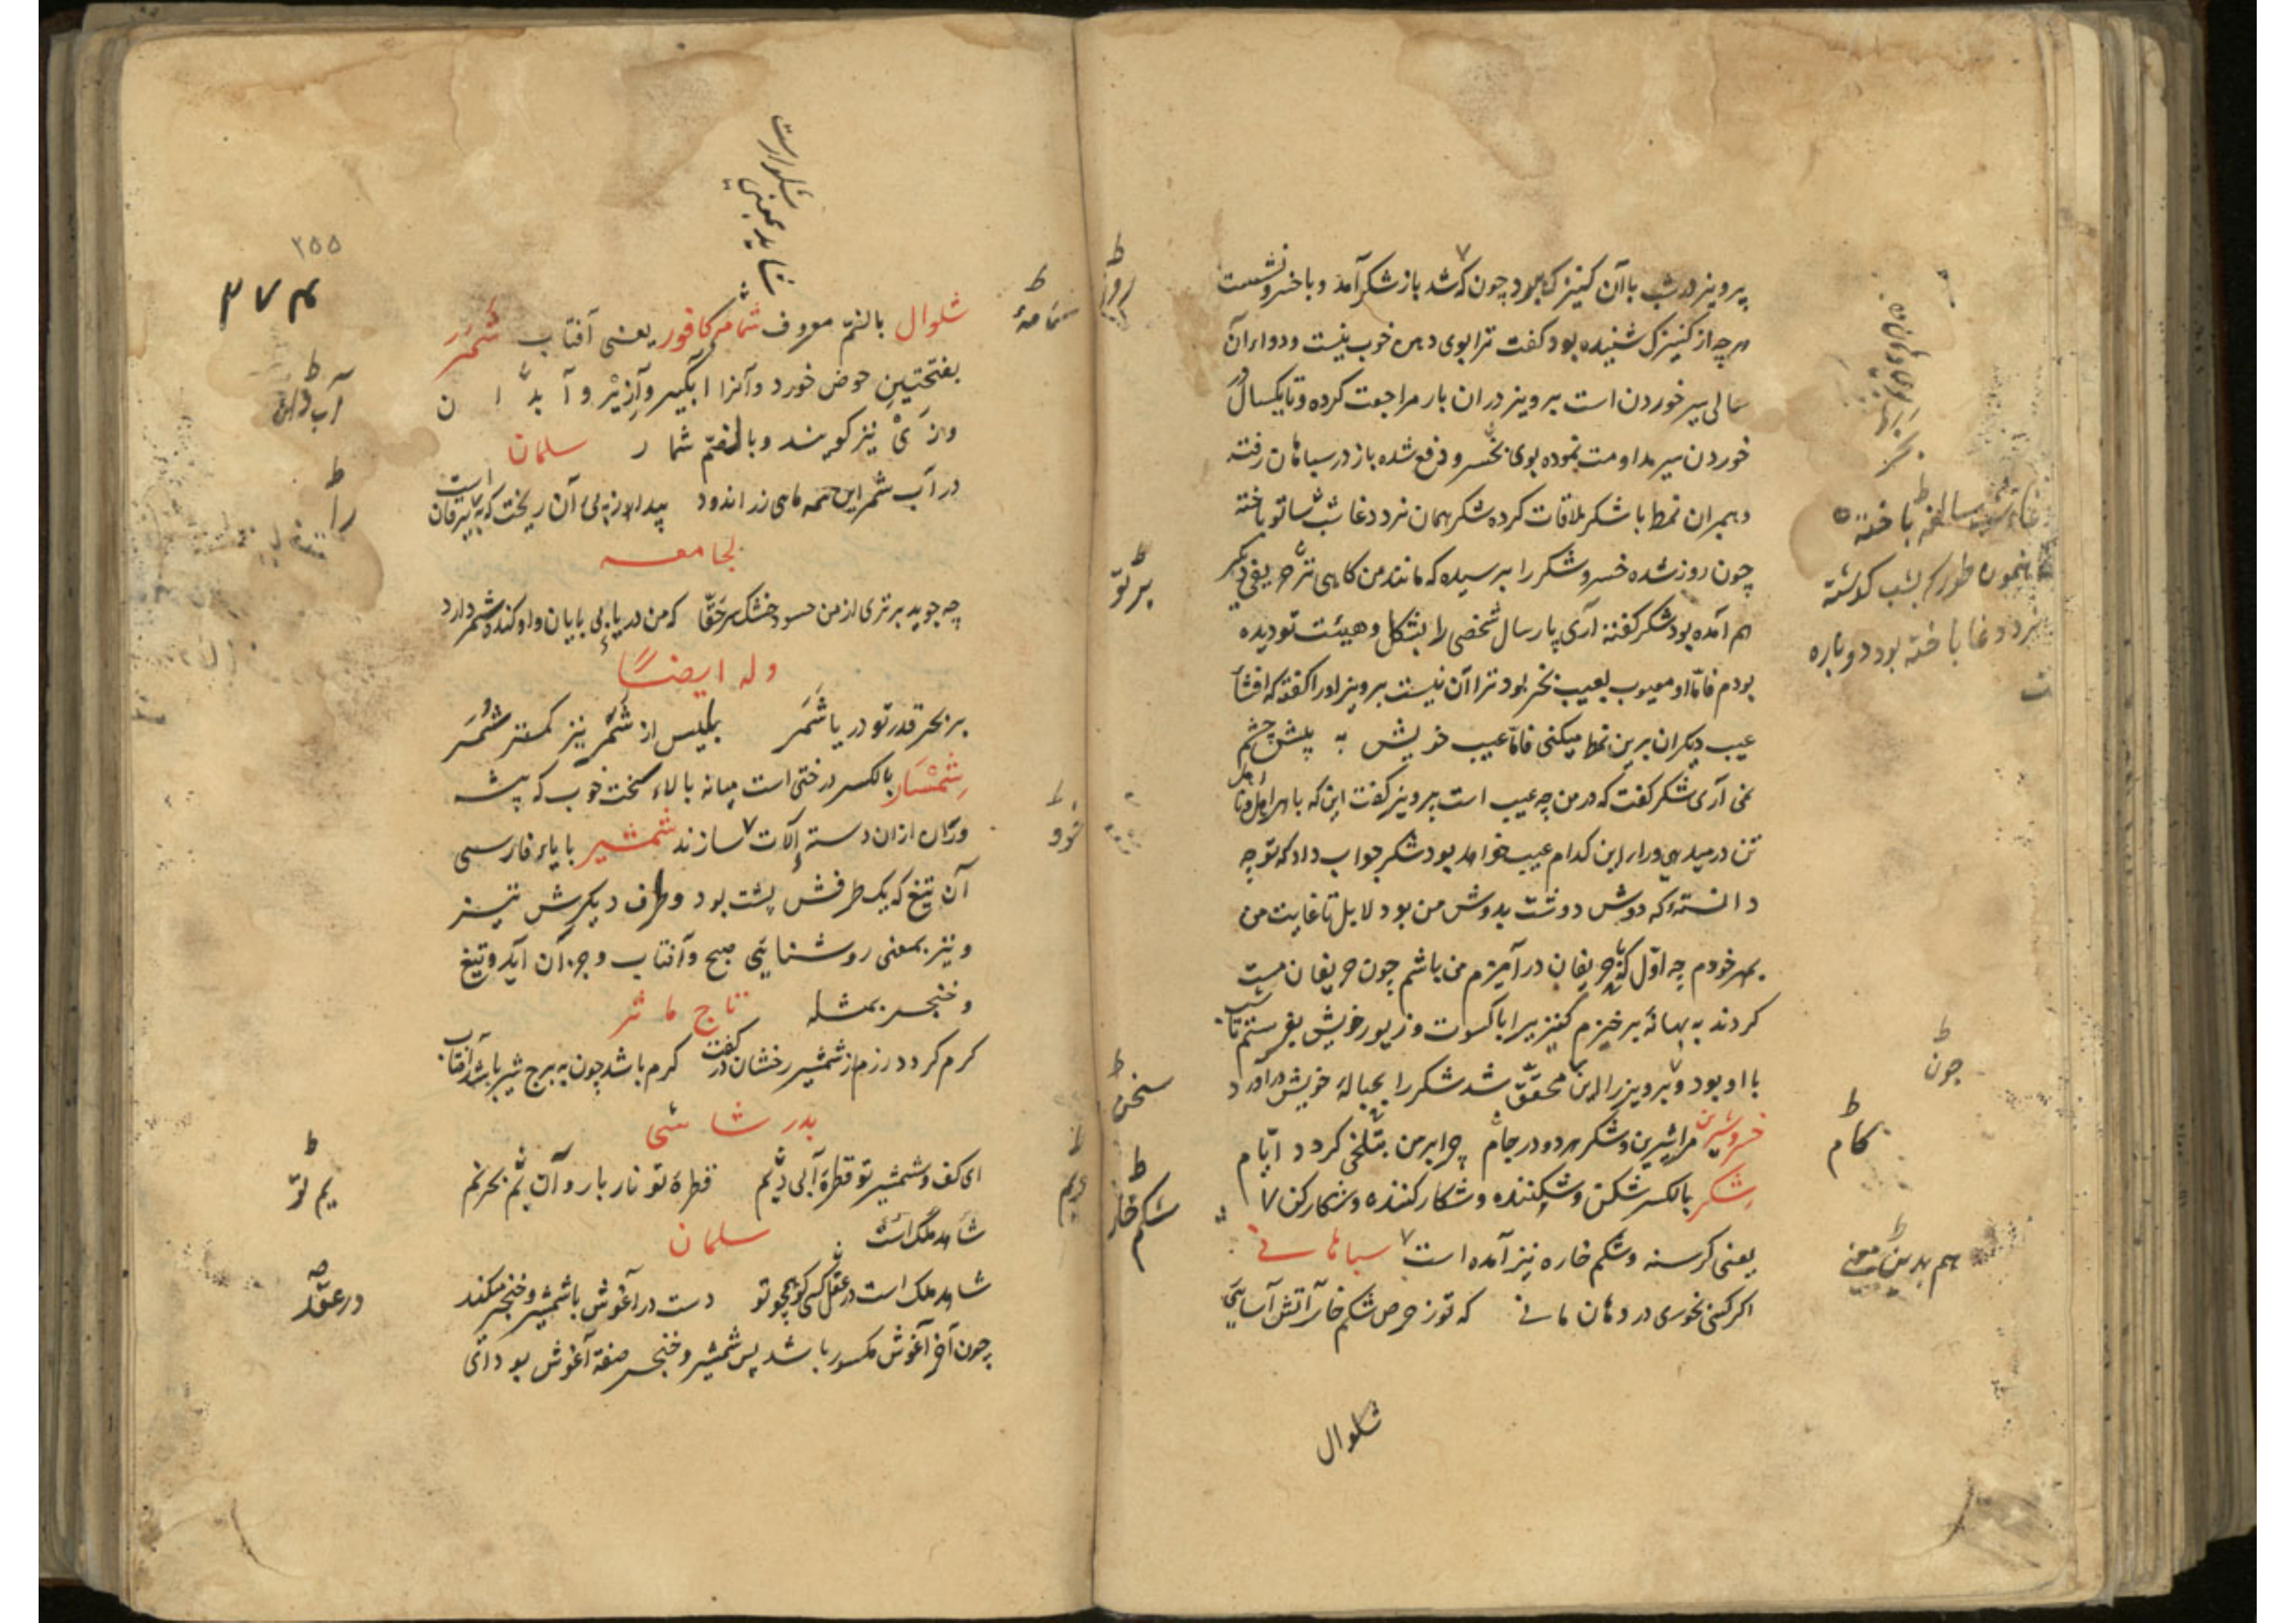 پرویز در شب با آن کنیزک بود چون که شد باز شکر آمد و با خسرو نشست
هرچه از کنیزک شنیده بود گفت ترا بوی دهن خوب نیست و دواء آن
سالی سیر خوردن است پرویز در آن بار مراجعت کرده و تا یکسال در
خوردن سیر مداومت نموده بوی بخر و دفع شده باز در سپاهان رفته
و بهمان نمط با شکر ملاقات کرده شکر همان نرد دغا شب با تو باخته
چون روز شده خسرو شکر را پرسیده که مانند من گاهی ترا حریفی دیگر
هم آمده بود شکر گفته آری پارسال شخصی را بشکل و هیئت تو دیده
بودم فامّا او معیوب بعیب بخر بود ترا آن نیست پرویز او را گفته که افشاء
عیب دیگران برین نمط میکنی فامّا عیب خویش به پیش چشم
نمی آری شکر گفت که در من چه عیب است پرویز گفت این که با هر اهل و نا اهل
تن در میدهی ورای این کدام عیب خواهد بود شکر جواب داد که تو چه
دانستهٔ که دوش دوشت بدوش من بود لا بل تا غایت من
بمهر خودم چه اوّل که با حریفان درآمیزم من باشم چون حریفان مست
کردند به بهانهٔ برخیزم کنیزیرا با کسوت و زیور خویش بفرستم تا شب
با او بود و پرویز را این محقّق شد شکر را بحبالهٔ خویش درآورد
خسرو شیرین مرا شیرین و شکر هر دو در جام چرا بر من بتلخی کردد ایّام
شِکر بالکسر شکن و شکننده و شکار کننده و شکار کن
یعنی کرسنه و شکم خاره نیز آمده است سپاهانی
اکر کنی نخوری در دهان مانی که تو ز حرص شکم خار آتش آسایی
شلوال
پرتو
سخن
شکم خار
چون
کام
هم بدین معنی
همون طور که بشب گذشته
نرد دغا باخته بود دوباره
۲۵۵
۳۷۴
شلوار است
شاید بمعنی
شلوال بالضمّ معروف شمامه کافور یعنی آفتاب شَمَر
بفتحتین حوض خورد و آنرا آبگیر و آزیر و آبدان
و ژی نیز کویند و بالضمّ شمار سلمان
در آب شمر این همه ماهی زر اندود پیدا از پی آن ریخت که پر یرقان است
لجامعه
چه جوید برتری از من حسود خشک سر حَقّا که من دریای بی پایان و او کنده شمر دارد
وله ایضًا
بر بحر قدر تو دریا شَمَر بلیس از شَمَر نیز کمتر شُمَر
شِمْشار بالکسر درختی است میانه بالاء سخت خوب که پیشه
وران ازان دسته آلات سازند شمشیر با یاء فارسی
آن تیغ که یک طرفش پشت بود و طرف دیکرش تیز
و نیز بمعنی روشنایی صبح و آفتاب و جز آن آید و تیغ
و خنجر بمثله تاج ماثر
کرم کردد رزم از شمشیر رخشان در کفت کرم باشد چون به برج شیر باشد آفتاب
بدر شاشی
ای کف و شمشیر تو قطرهٔ آبی و یم قطرهٔ تو نار بار و آن یم بحر نم
شاهد ملک است سلمان
شاهد ملک است در عقد کسی کو همچو تو دست در آغوش با شمشیر و خنجر میکند
چون آخر آغوش مکسور باشد پس شمشیر و خنجر صفة آغوش بود ای
شمامهٔ
آب دان
را
یم تو
در عقد